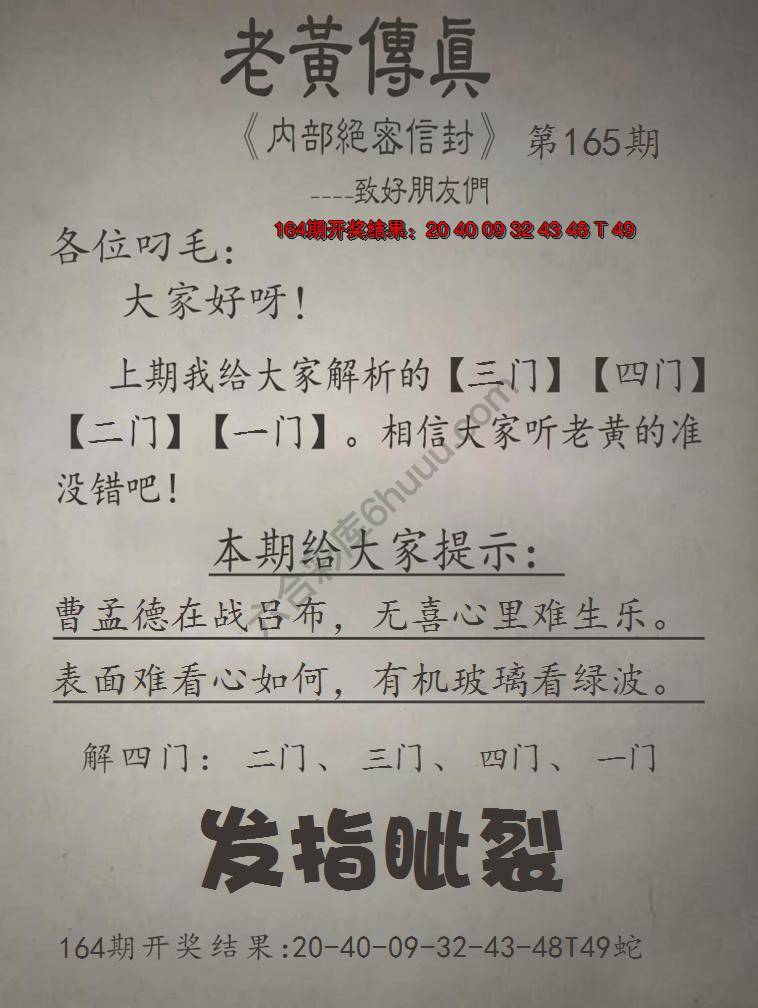 老黃傳真
《内部絕密信封》 第165期
----致好朋友們
164期开奖结果：20 40 09 32 43 48 T 49
各位叼毛：
大家好呀！
上期我给大家解析的【三门】【四门】
【二门】【一门】。相信大家听老黄的准
没错吧！
本期给大家提示：
曹孟德在战吕布，无喜心里难生乐。
表面难看心如何，有机玻璃看绿波。
解四门：二门、三门、四门、一门
发指眦裂
164期开奖结果:20-40-09-32-43-48T49蛇
六合彩库6huuu.com